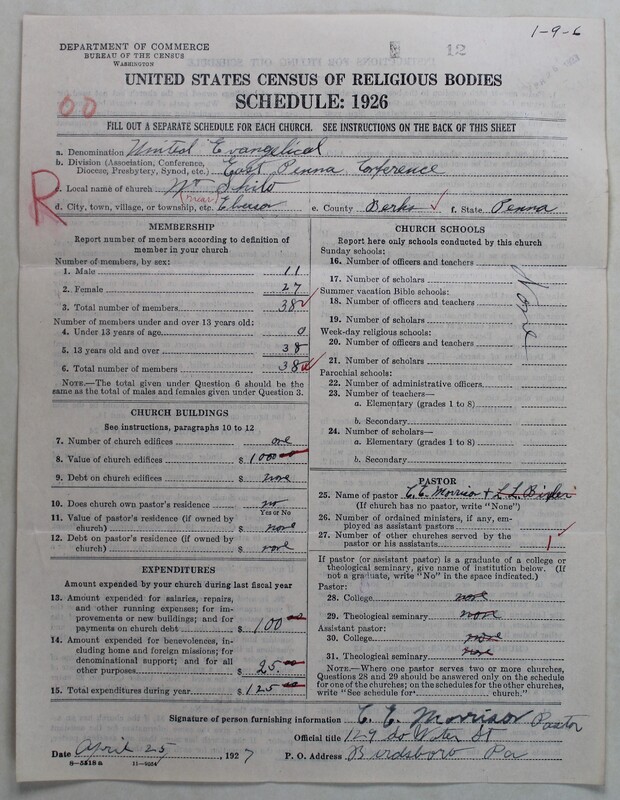 1-9-6
DEPARTMENT OF COMMERCE
BUREAU OF THE CENSUS
WASHINGTON
12
UNITED STATES CENSUS OF RELIGIOUS BODIES
SCHEDULE: 1926
00
FILL OUT A SEPARATE SCHEDULE FOR EACH CHURCH. SEE INSTRUCTIONS ON THE BACK OF THIS SHEET
R
a. Denomination United Evangelical
b. Division (Association, Conference, Diocese, Presbytery, Synod, etc.) East Penna Conference
c. Local name of church Mt Shilo
(near)
d. City, town, village, or township, etc. e. County Berks f. State Penna
MEMBERSHIP
Report number of members according to definition of
member in your church
Number of members, by sex:
1. Male 11
2. Female 27
3. Total number of members 38
Number of members under and over 13 years old:
4. Under 13 years of age 0
5. 13 years old and over 38
6. Total number of members 38
NOTE.—The total given under Question 6 should be the
same as the total of males and females given under Question 3.
CHURCH BUILDINGS
See instructions, paragraphs 10 to 12
7. Number of church edifices one
8. Value of church edifices $ 1000
9. Debt on church edifices $ none
10. Does church own pastor's residence? no
Yes or No
11. Value of pastor's residence (if owned by
church) $ none
12. Debt on pastor's residence (if owned by
church) $ none
EXPENDITURES
Amount expended by your church during last fiscal year
13. Amount expended for salaries, repairs,
and other running expenses; for im-
provements or new buildings; and for
payments on church debt $ 100
14. Amount expended for benevolences, in-
cluding home and foreign missions; for
denominational support; and for all
other purposes $ 25
15. Total expenditures during year $ 125
CHURCH SCHOOLS
Report here only schools conducted by this church
Sunday schools:
16. Number of officers and teachers
17. Number of scholars
Summer vacation Bible schools:
18. Number of officers and teachers
19. Number of scholars
None
Week-day religious schools:
20. Number of officers and teachers
21. Number of scholars
Parochial schools:
22. Number of administrative officers
23. Number of teachers—
a. Elementary (grades 1 to 8)
b. Secondary
24. Number of scholars—
a. Elementary (grades 1 to 8)
b. Secondary
PASTOR
25. Name of pastor C. E. Morrison + L. L.
(If church has no pastor, write "None")
26. Number of ordained ministers, if any, em-
ployed as assistant pastors
27. Number of other churches served by the
pastor or his assistants 1
If pastor (or assistant pastor) is a graduate of a college or
theological seminary, give name of institution below. (If
not a graduate, write "No" in the space indicated.)
Pastor:
28. College none
29. Theological seminary none
Assistant pastor:
30. College none
31. Theological seminary none
NOTE.—Where one pastor serves two or more churches,
Questions 28 and 29 should be answered only on the schedule
for one of the churches; on the schedules for the other churches,
write "See schedule for church."
Signature of person furnishing information C. E. Morrison Pastor
Official title 129 So Water St
Date April 25, 1927 P. O. Address Birdsboro Pa
8-5518a 11-9054